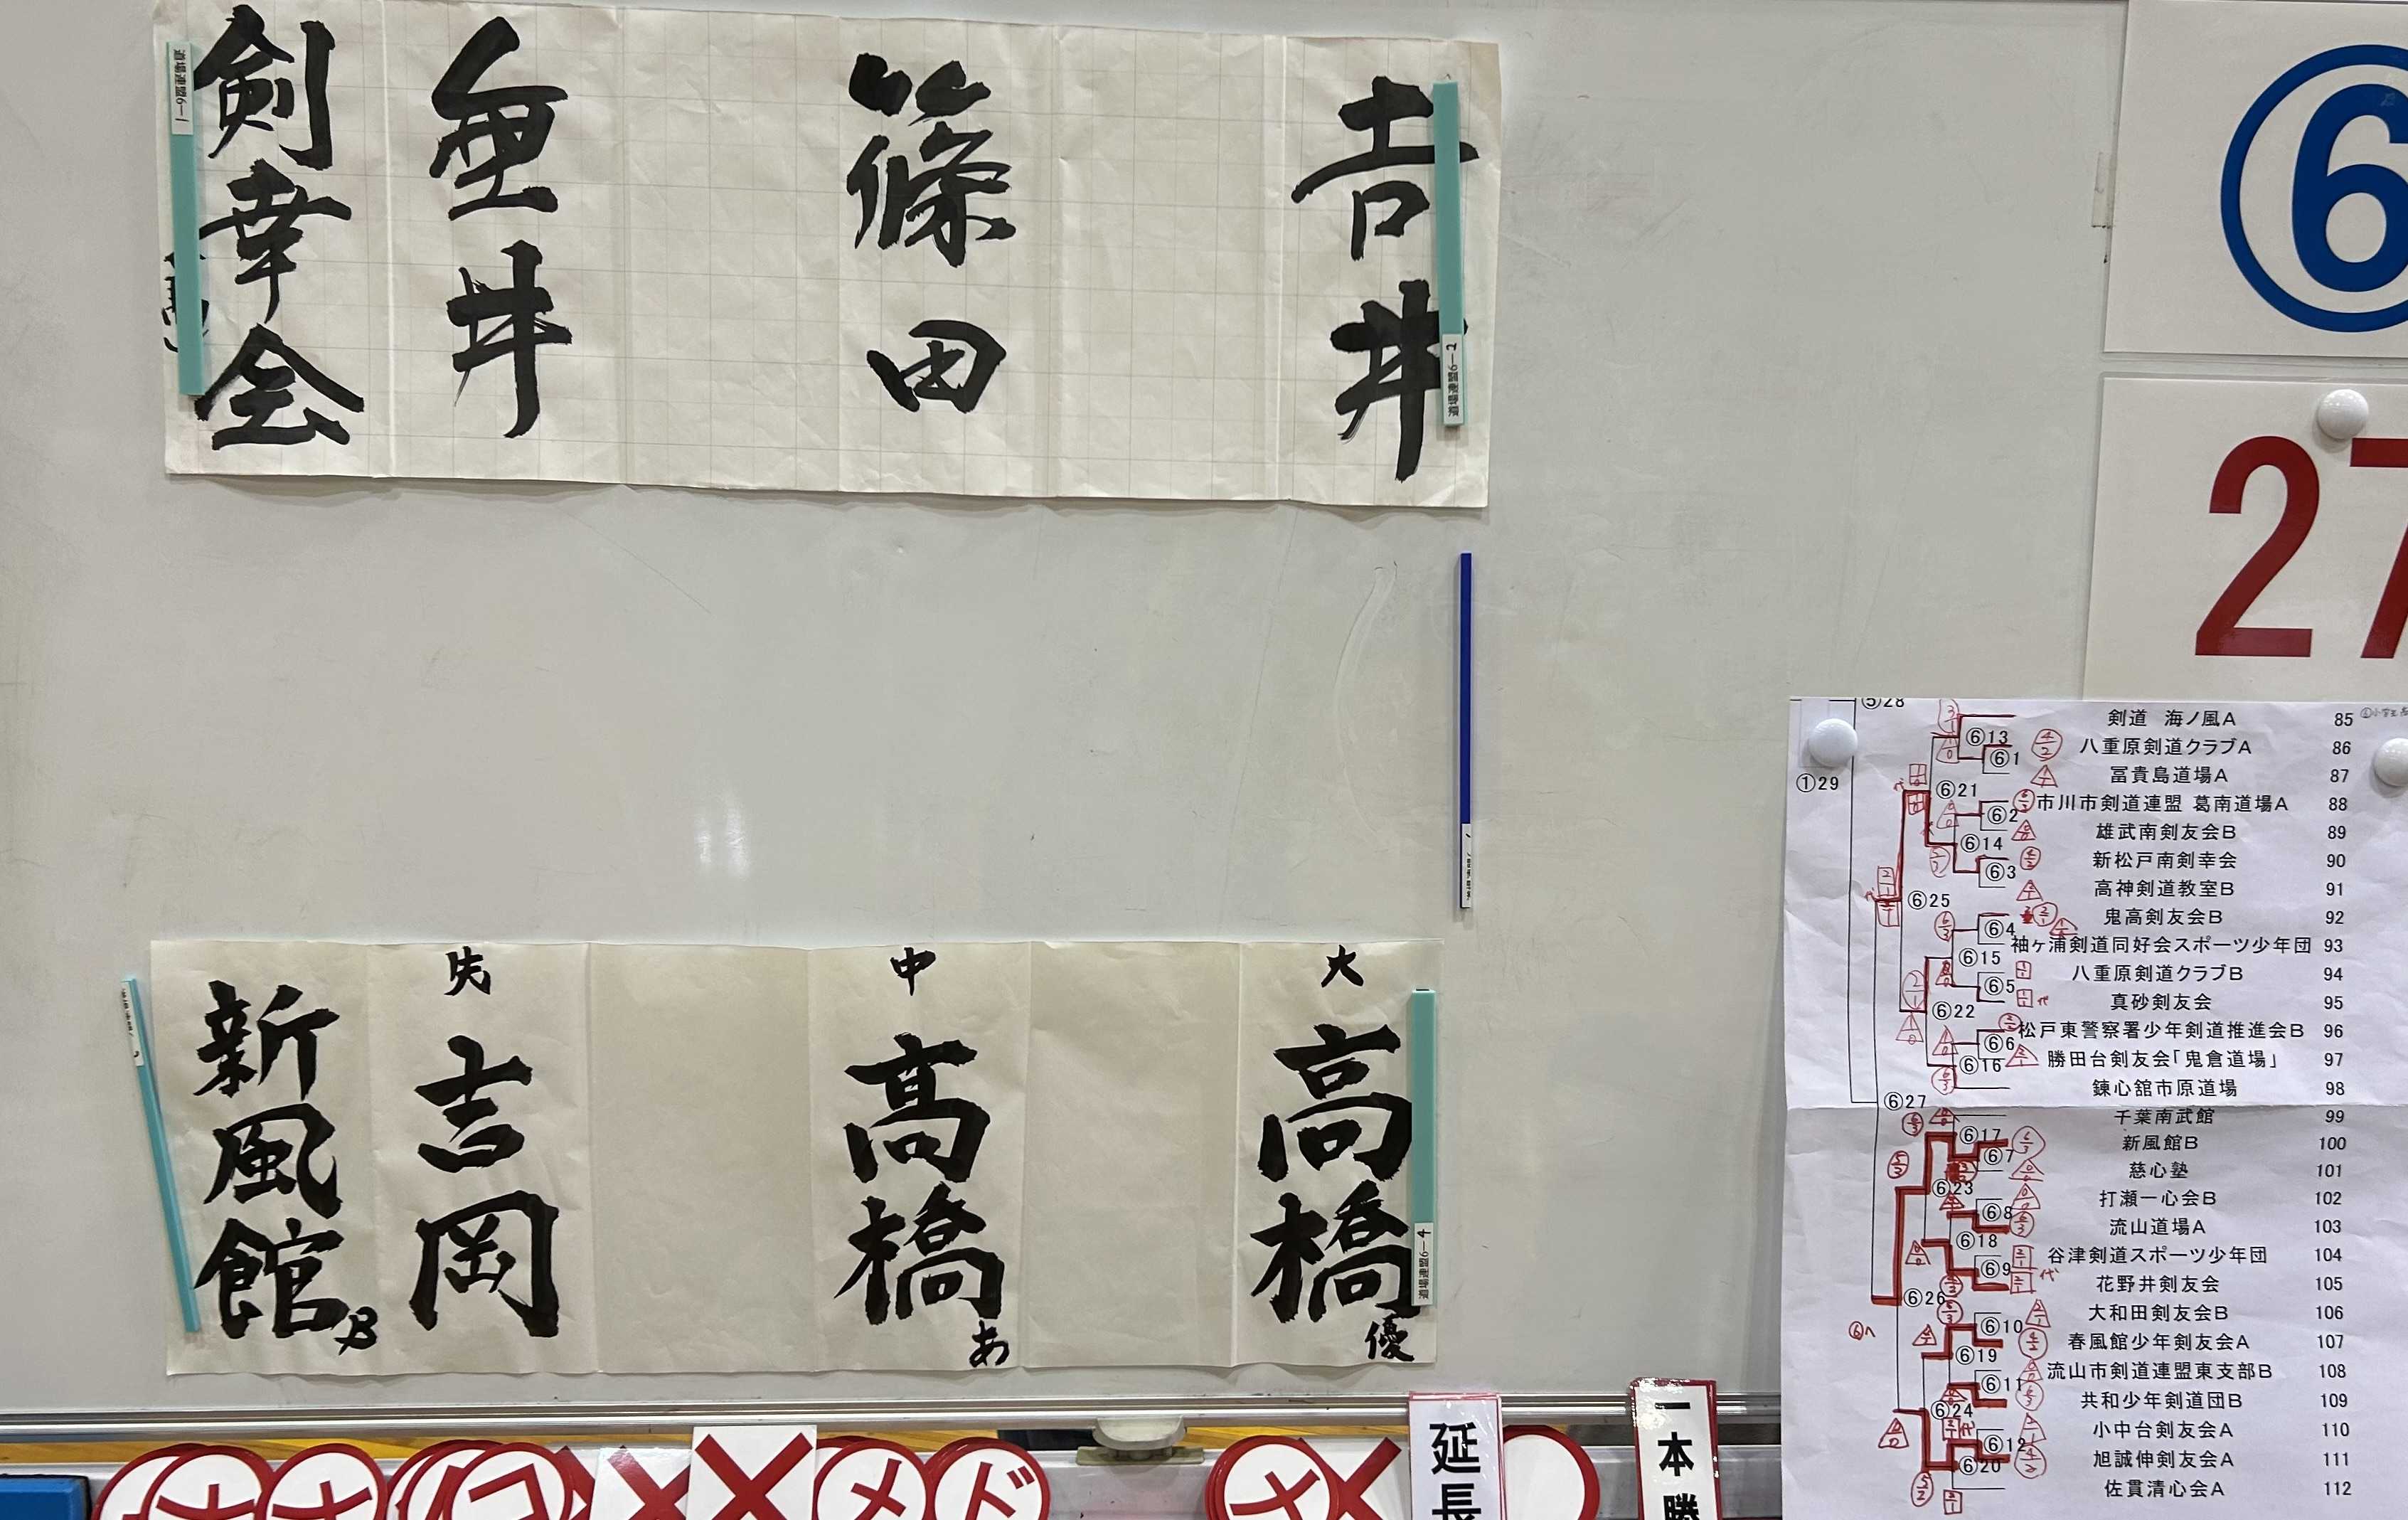 剣幸会
無井
篠田
吉井
道場連盟6-2
⑥
27
新風館B
先
吉岡
中
高橋
あ
大
高橋
優
道場連盟6-4
⑤28
①29
⑥13
⑥1
⑥21
⑥2
⑥14
⑥3
⑥25
⑥4
⑥15
⑥5
⑥22
⑥6
⑥16
⑥27
⑥17
⑥7
⑥23
⑥8
⑥18
⑥9
⑥26
⑥10
⑥19
⑥11
⑥24
⑥12
⑥20
剣道 海ノ風A 85
八重原剣道クラブA 86
冨貴島道場A 87
市川市剣道連盟 葛南道場A 88
雄武南剣友会B 89
新松戸南剣幸会 90
高神剣道教室B 91
鬼高剣友会B 92
袖ヶ浦剣道同好会スポーツ少年団 93
八重原剣道クラブB 94
真砂剣友会 95
松戸東警察署少年剣道推進会B 96
勝田台剣友会「鬼倉道場」 97
錬心舘市原道場 98
千葉南武館 99
新風館B 100
慈心塾 101
打瀬一心会B 102
流山道場A 103
谷津剣道スポーツ少年団 104
花野井剣友会 105
大和田剣友会B 106
春風館少年剣友会A 107
流山市剣道連盟東支部B 108
共和少年剣道団B 109
小中台剣友会A 110
旭誠伸剣友会A 111
佐貫清心会A 112
コ
メ
ド
延長
一本勝